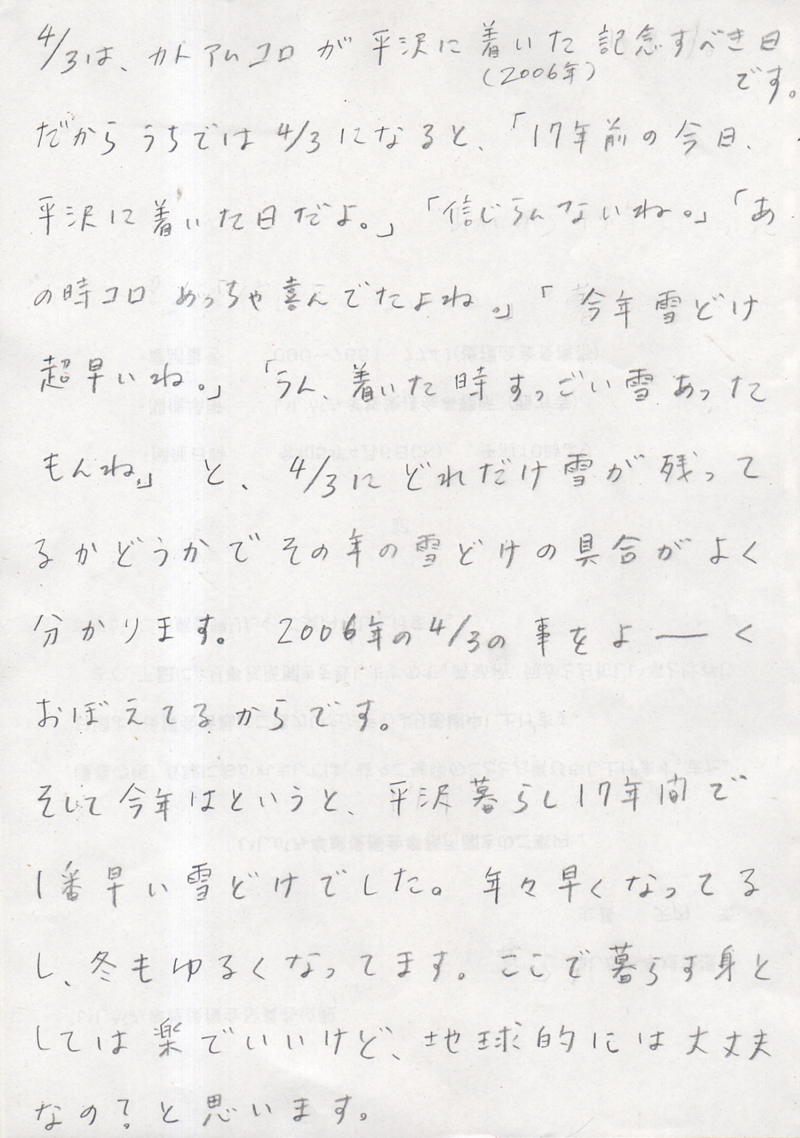 4/3は、カトアムコロが平沢に着いた記念すべき日
(2006年)
です。
だからうちでは4/3になると、「17年前の今日、
平沢に着いた日だよ。」「信じらんないね。」「あ
の時コロめっちゃ喜んでたよね。」「今年雪どけ
超早いね。」「うん、着いた時すっごい雪あった
もんね。」と、4/3にどれだけ雪が残って
るかどうかでその年の雪どけの具合がよく
分かります。2006年の4/3の事をよーく
おぼえてるからです。
そして今年はというと、平沢暮らし17年間で
1番早い雪どけでした。年々早くなってる
し、冬もゆるくなってます。ここで暮らす身と
しては楽でいいけど、地球的には大丈夫
なの?と思います。